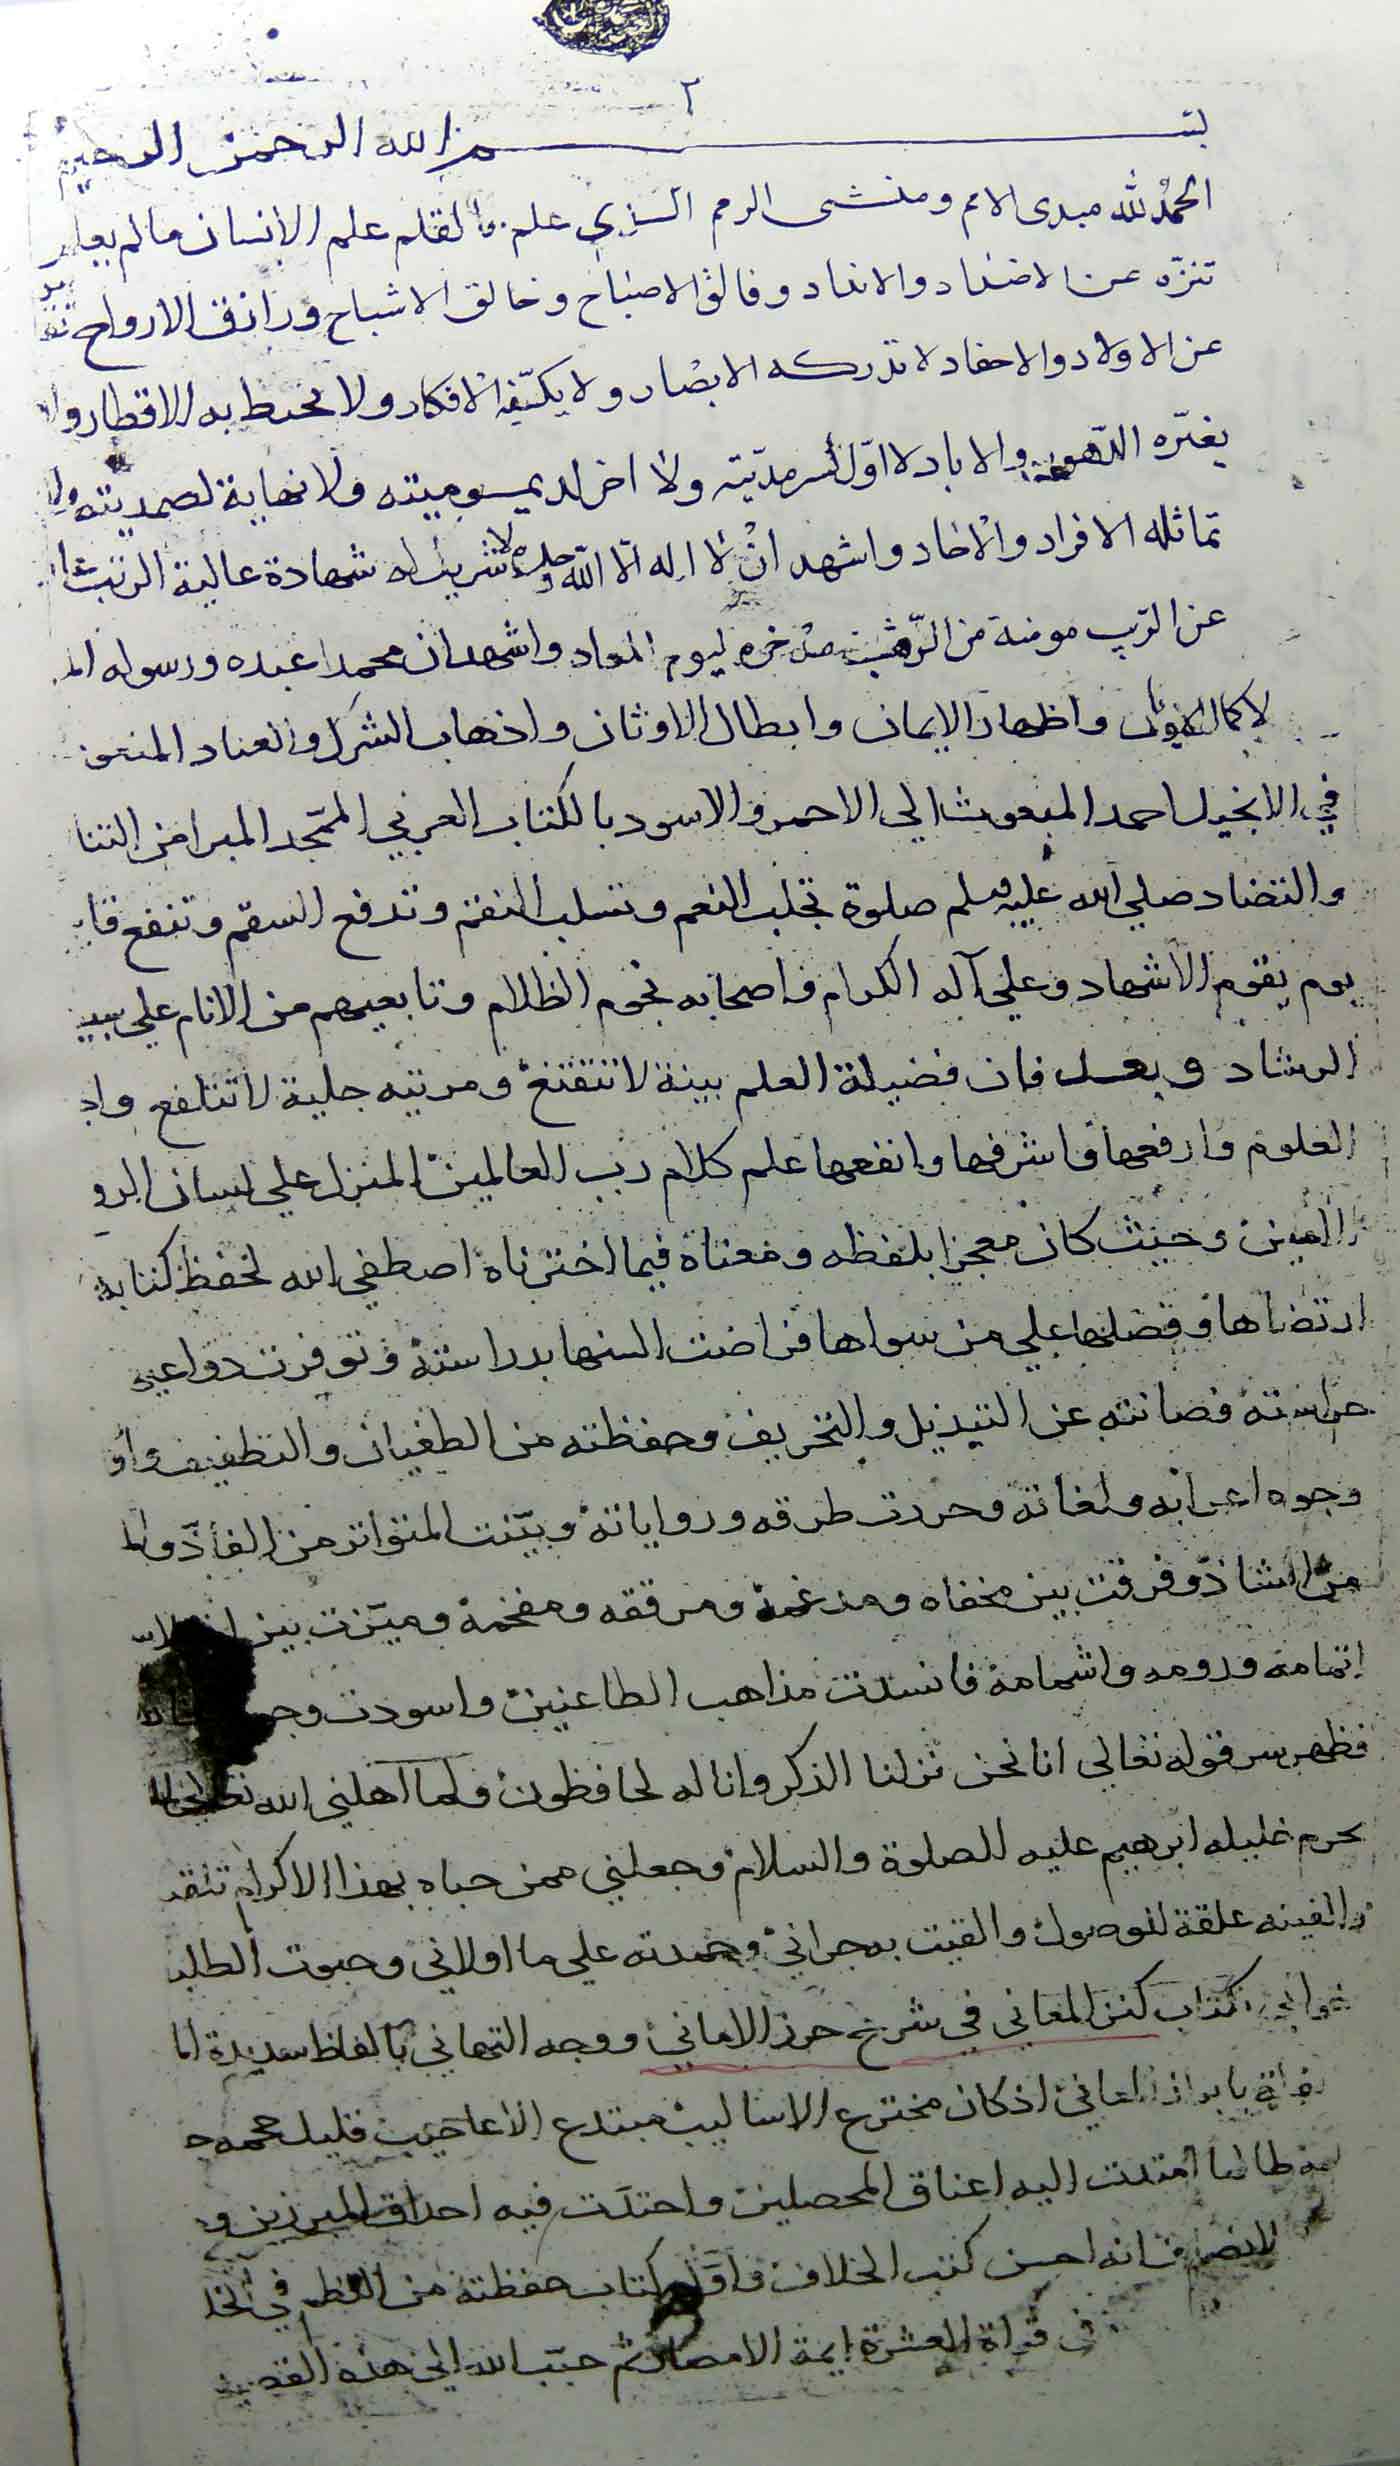 ٢
بسم الله الرحمن الرحيم
الحمد لله مبدى الامم ومنشى الرمم الذي علم بالقلم علم الانسان مالم يعلم
تنزه عن الاضداد والانداد وفالق الاصباح وخالق الاشباح ورازق الارواح
عن الاولاد والاحفاد لا تدركه الابصار ولا يكيفه الافكار ولا تحيط به الاقطار ولا
يغيره الدهور والاباد لا اول لسرمديته ولا اخر لديموميته ولا نهاية لصمديته ولا
تماثله الافراد والاحاد واشهد ان لا اله الا الله وحده لا شريك له شهادة عالية الرتب
عن الريب مومنة من الرهب مدخره ليوم المعاد واشهد ان محمدا عبده ورسوله
لاكمال واظهار الايمان وابطال الاوثان واذهاب الشرك والعناد المنعوت
في الانجيل احمد المبعوث الي الاحمر والاسود بالكتاب العربي الممجد المبرا من التنا
والتضاد صلي الله عليه وسلم صلوة تجلب النعم وتسلب النقم وتدفع السقم وتنفع
يوم يقوم الاشهاد وعلي آله الكرام واصحابه نجوم الظلام وتابعيهم من الانام علي سبيل
الرشاد وبعد فان فضيلة العلم بينة لا تتقنع ومرتبه جلية لا تتلفع
العلوم وارفعها واشرفها وانفعها علم كلام رب العالمين المنزل علي لسان الرو
الامين وحيث كان معجزا بلفظه ومعناه فيما اخترناه اصطفي الله لحفظ كتابه
ارتضاها وفضلها علي من سواها فراضت السنها بدراسته وتوفرت دواعي
حراسته فصانته عن التبديل والتحريف وحفظته من الطغيان والتطفيف
وجوه اعرابه ولغاته وحررت طرقه ورواياته وبينت المتواتر من الفاذ
من الشاذ وفرقت بين مخفاه ومدغمه ومرققه ومفخمه وميزت بين
اتمامه ورومه واشمامه فانسدت مذاهب الطاعنين واسودت
فظهر سر قوله تعالي انا نحن نزلنا الذكر وانا له لحافظون ولما اهلني الله تعالي
بحرم خليله ابرهيم عليه الصلوة والسلام وجعلني ممن حباه بهذا الاكرام
والفيته علقة للوصول والقيت به جراني وحمدته علي ما اولاني وحبوت الطلب
كتاب كنز المعاني في شرح حرز الاماني ووجه التهاني بالفاظ سديدة
بابراز المعاني اذ كان مخترع الاساليب مبتدع الاعاجيب قليل حجمه
طالما امتدت اليه اعناق المحصلين واحتدت فيه احداق المبرزين
فانه احسن كتب الخلاف واول كتاب حفظته من النظم في الخلا
في قراة العشرة ايمة الامصار ثم حبب الله الي هذه